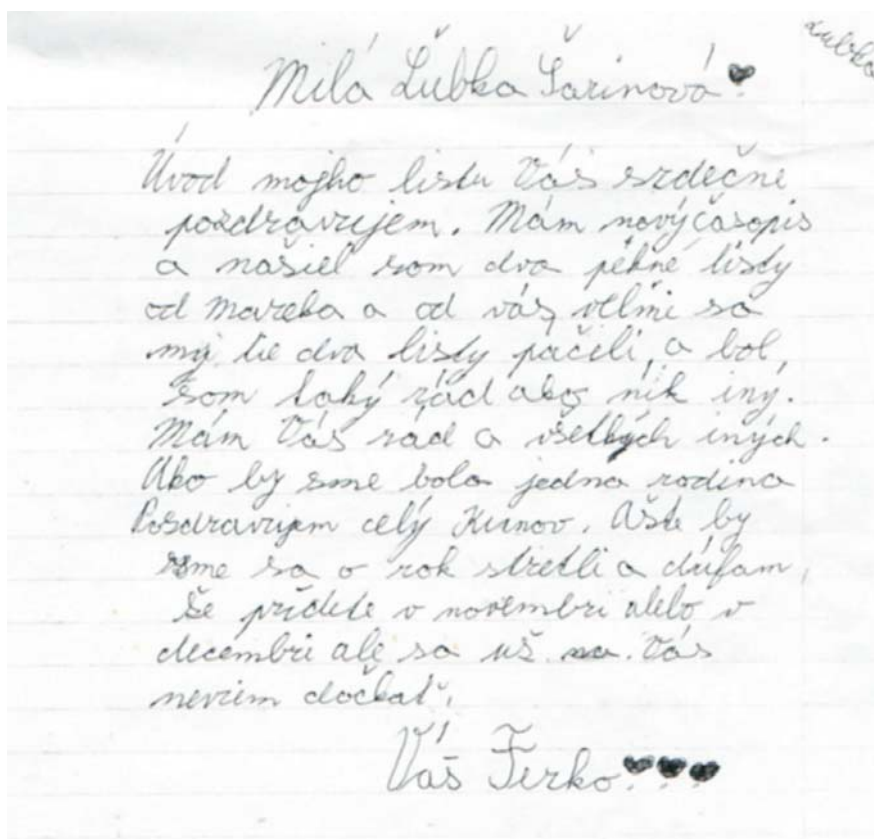 Ľubka
Milá Ľubka Šarinová!
Úvod mojho listu Vás srdečne
pozdravujem. Mám nový časopis
a našiel som dva pěkné listy
od Mareka a od vás, veľmi sa
my tie dva listy páčili, a bol
som taký rád ako nik iný.
Mám Vás rád a všetkých iných.
Ako by sme bola jedna rodina
Pozdravujem celý Kunov. Ašte by
sme sa o rok stretli a dúfam,
že prídete v novembri alebo v
decembri ale sa už na Vás
neviem dočkať.
Váš Ferko